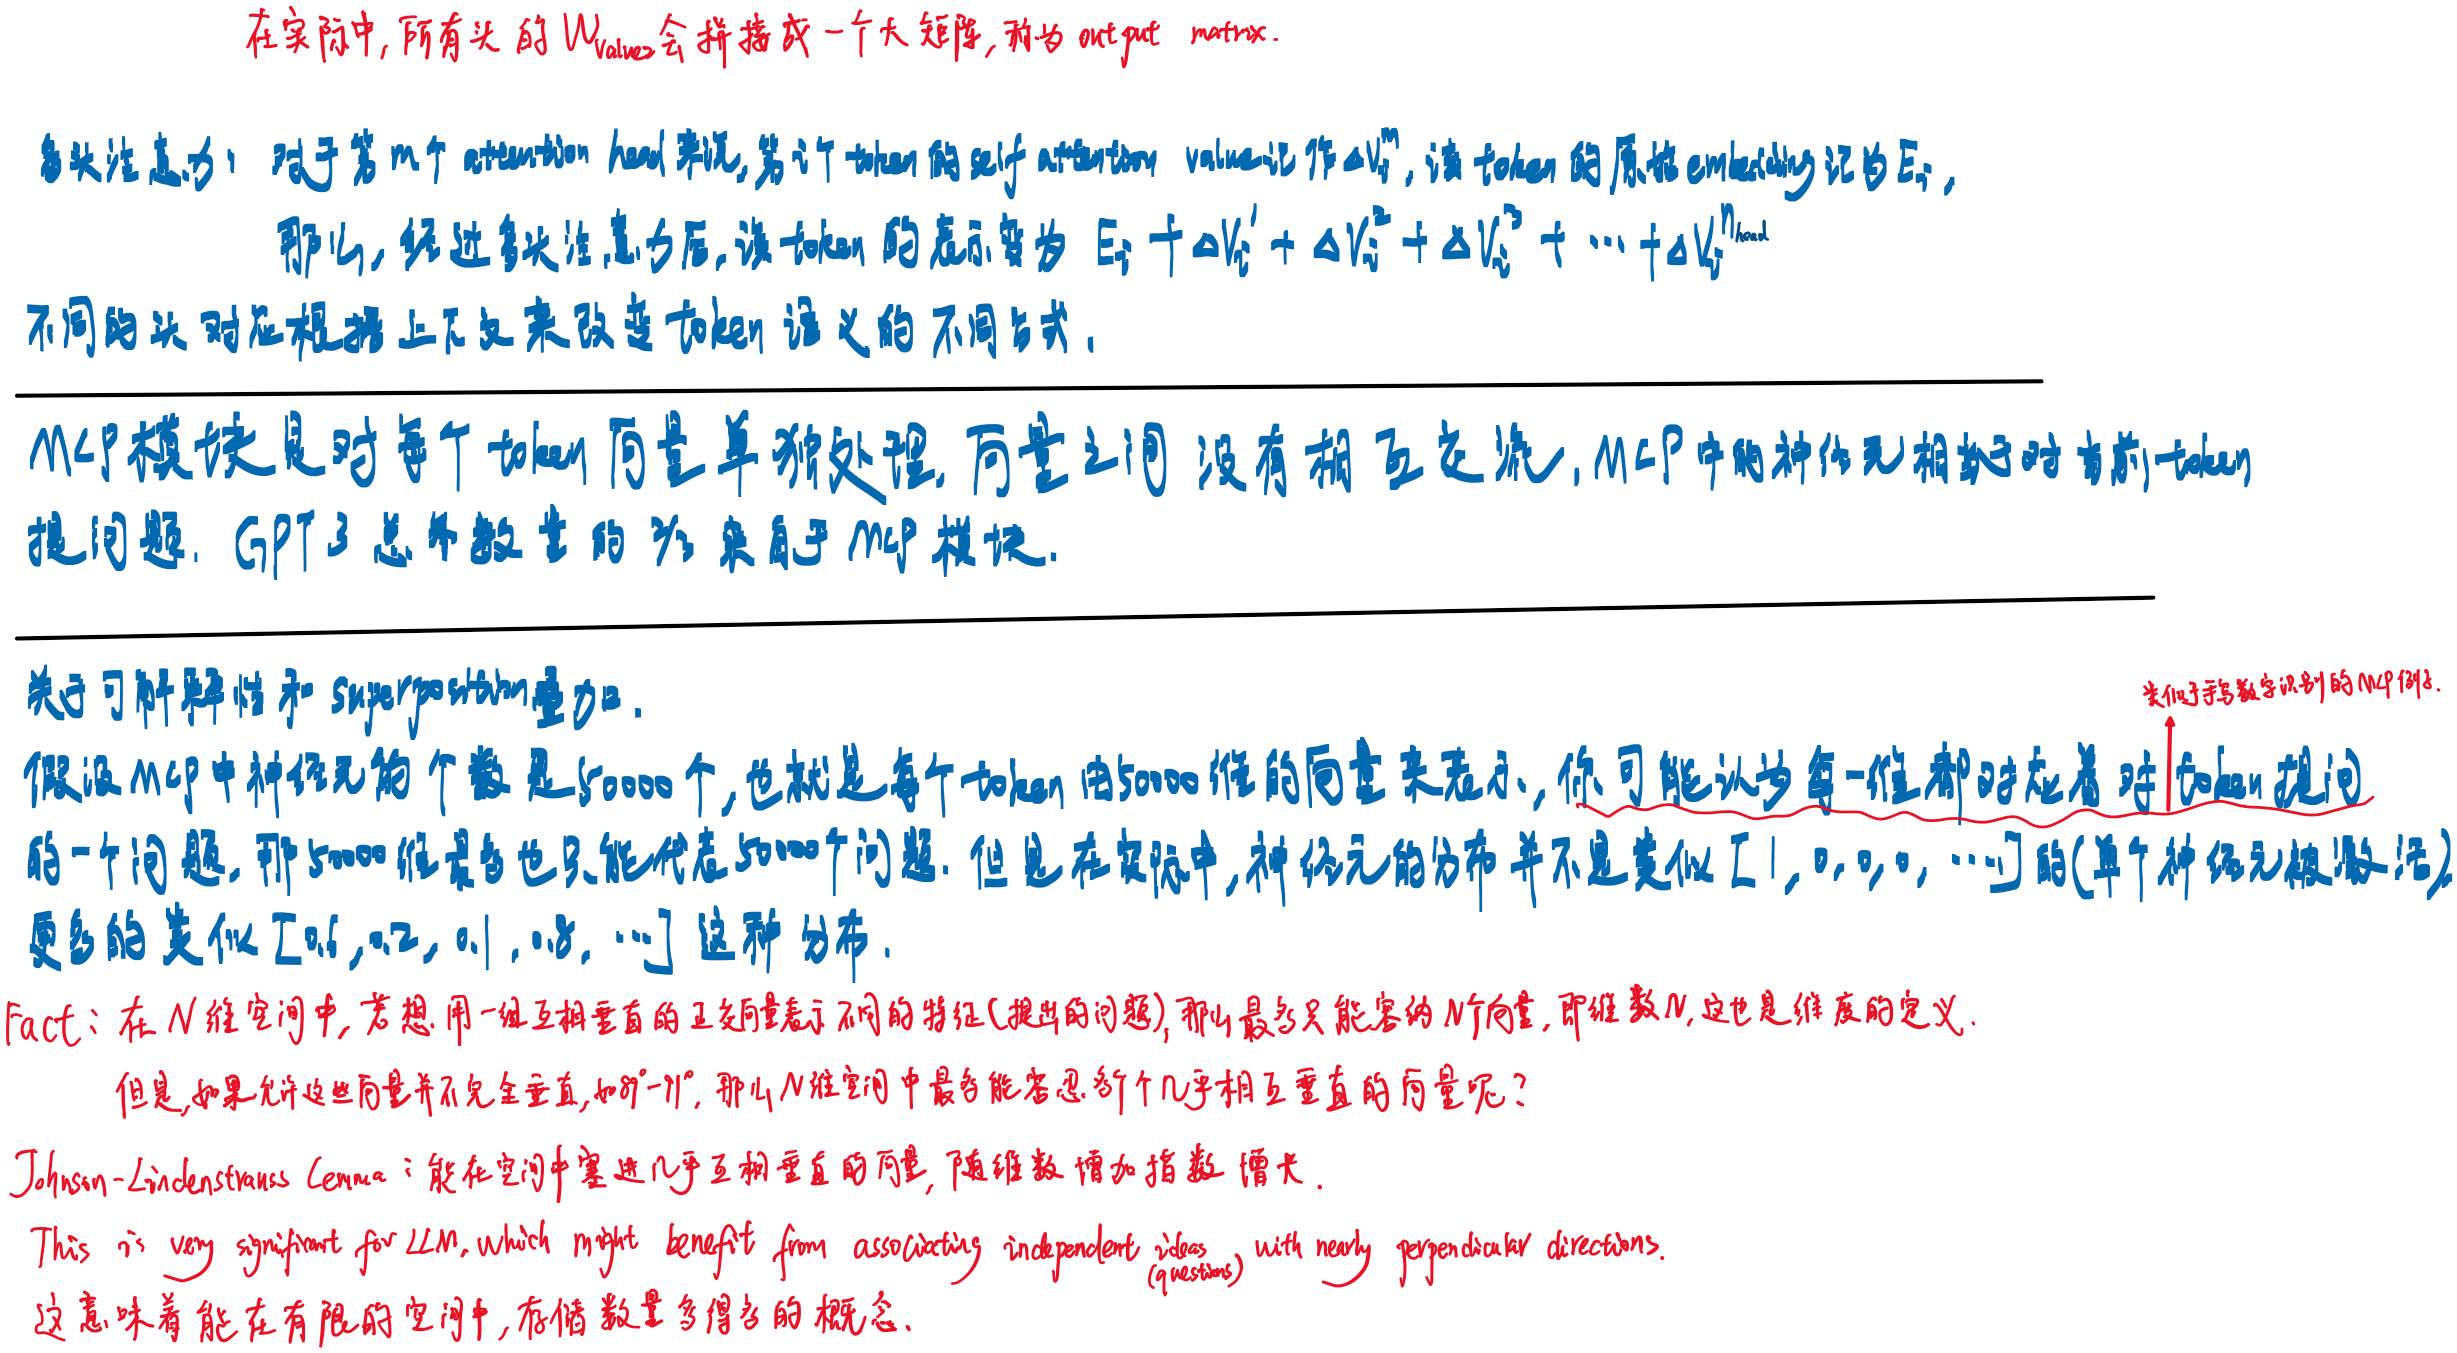 在实际中,所有头的W_value2会拼接成一个大矩阵,称为output matrix.
多头注意力: 对于第m个attention head来说,第i个token的self attention value记作ΔVᵢᵐ,该token的原始embedding记为Eᵢ,
那么,经过多头注意力后,该token的表示变为 Eᵢ+ΔVᵢ¹+ΔVᵢ²+ΔVᵢ³+…+ΔVᵢ^n_head
不同的头对应根据上下文来改变token语义的不同方式.
MLP模块是对每个token向量单独处理,向量之间没有相互交流,MLP中的神经元相当于对当前token
提问题. GPT3总参数量的2/3来自于MLP模块.
关于可解释性和superposition叠加.
类似于手写数字识别的MLP例子.
假设MLP中神经元的个数是50000个,也就是每个token由50000维的向量来表示,你可能认为每一维都对应着对token提问
的一个问题,那50000维最多也只能代表50000个问题.但是在实际中,神经元的分布并不是类似[1,0,0,0,…]的(单个神经元被激活),
更多的类似[0.6,0.2,0.1,0.8,…]这种分布.
Fact: 在N维空间中,若想用一组互相垂直的正交向量表示不同的特征(提出的问题),那么最多只能容纳N个向量,即维数N,这也是维度的定义.
但是,如果允许这些向量并不完全垂直,如89°-91°,那么N维空间中最多能容忍多少个几乎相互垂直的向量呢?
Johnson-Lindenstrauss Lemma: 能在空间中塞进几乎互相垂直的向量,随维数增加指数增长.
This is very significant for LLM, which might benefit from associating independent ideas (questions) with nearly perpendicular directions.
这意味着能在有限的空间中,存储数量多得多的概念.